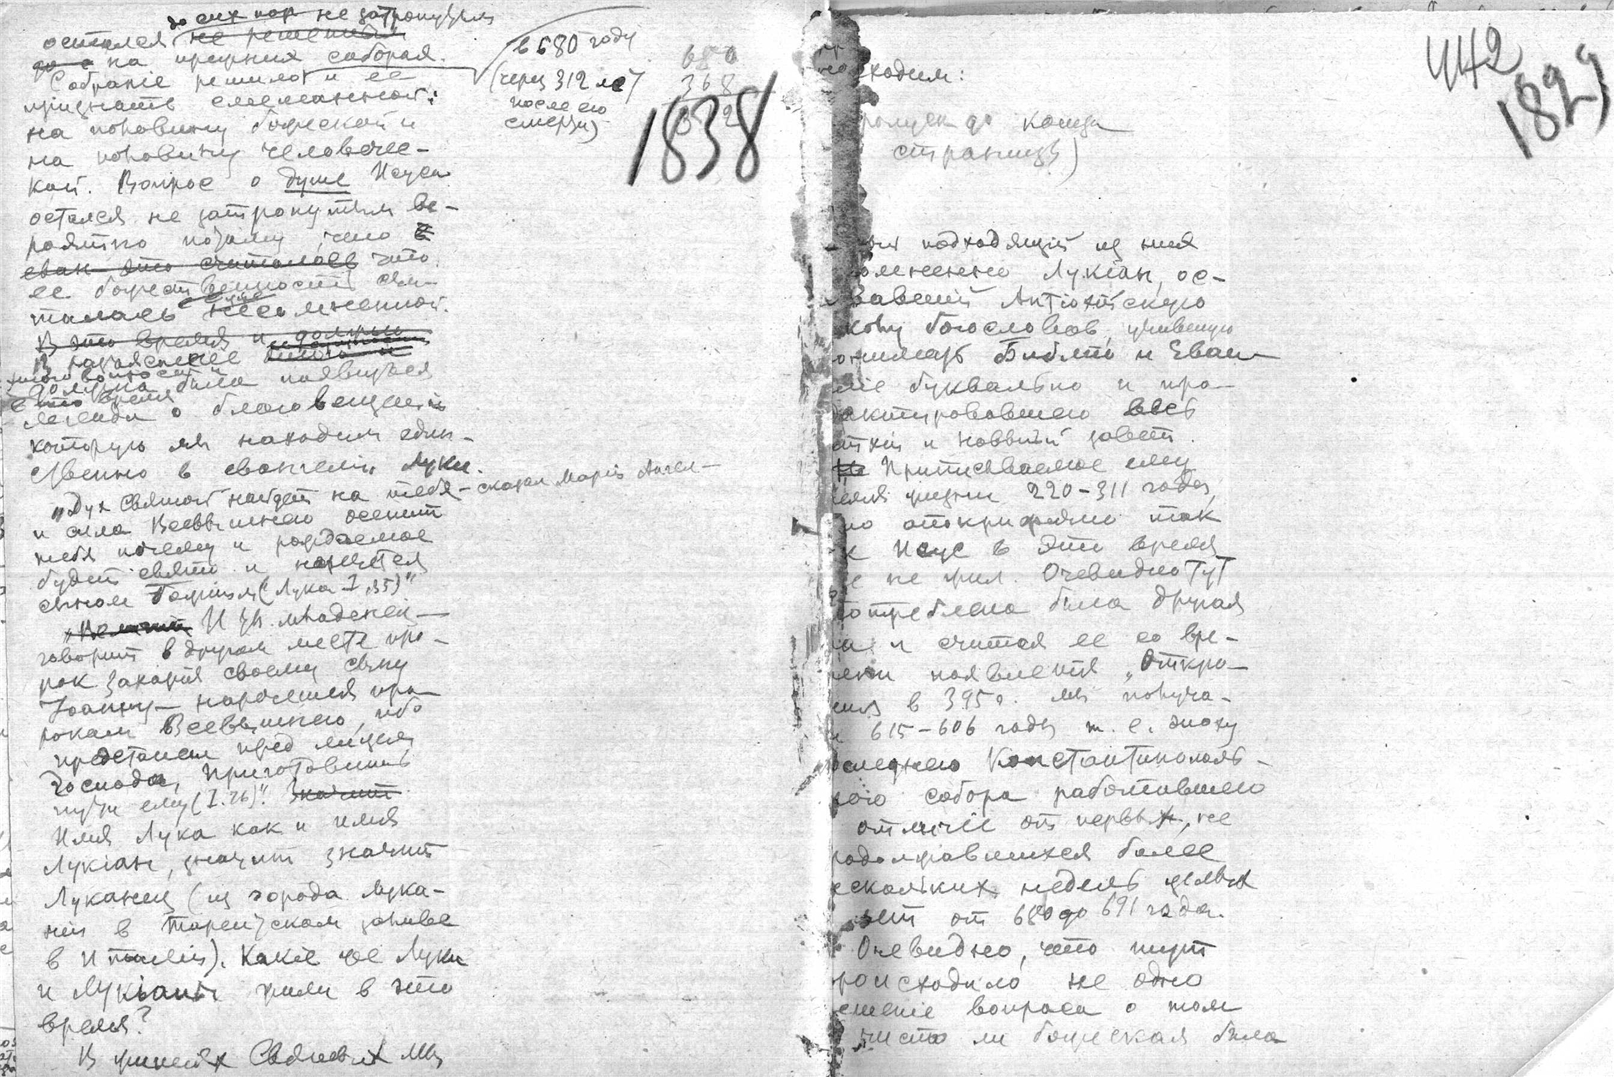 до сих пор не затронутым
остался не решенным
на прежних соборах.
Собрание решило и ее
признать смешанной:
на половину божеской и
на половину человечес-
кой. Вопрос о душе Исуса
остался не затронутым ве-
роятно потому, что
считалось что
ее божественность счи-
талась еще несомненной.
В это время и должна
В разъяснение
этого вопроса и
должна была появиться
в это время
легенда о благовещеніи
которую мы находим един-
ственно в евангеліи Луки.
„Дух Святой найдет на тебя – сказал Маріи Ангел –
и сила Всевышнего осенит
тебя почему и рождаемое
будет свято и наречется
сыном Божіим (Лука I,35)"
И ты младенец —
говорит в другом месте про-
рок Захарія своему сыну
Іоанну — наречешься про-
роком Всевышнего, ибо
предстанешь пред лицем
Господа, приготовить
пути ему (I.76)". Значит
Имя Лука как и имя
Лукіан, значит значит
Луканец (из города Лука-
ніи в Тарентском заливе
в Италіи). Какіе же Луки
и Лукіаны жили в это
время?
В житіях Святых мы
в 680 году
(через 312 лет
после его
смерти)
680
368
312
1838
ходим:
пропуск до конца
страницы)
442
1829
подходящій из них
Лукіан, ос-
новавшій Антіохійскую
школу богословов, учившую
понимать Библію и Еван-
геліе буквально и про-
дактировавшего весь
и Новый завет.
Приписываемое ему
время жизни 220–311 года,
но апокрифично так
как Исус в это время
не жил. Очевидно тут
потреблена была другая
и считая ее со вре-
мени появления „Откро-
в 395 г. мы получа-
ем 615–606 годы т. е. эпоху
последнего Константинополь-
ского собора работавшего
в отличіе от первых, не
продолжавшихся более
нескольких недель целых
лет от 680 до 691 года.
Очевидно, что тут
происходило не одно
решение вопроса о том
чисто ли божеская была